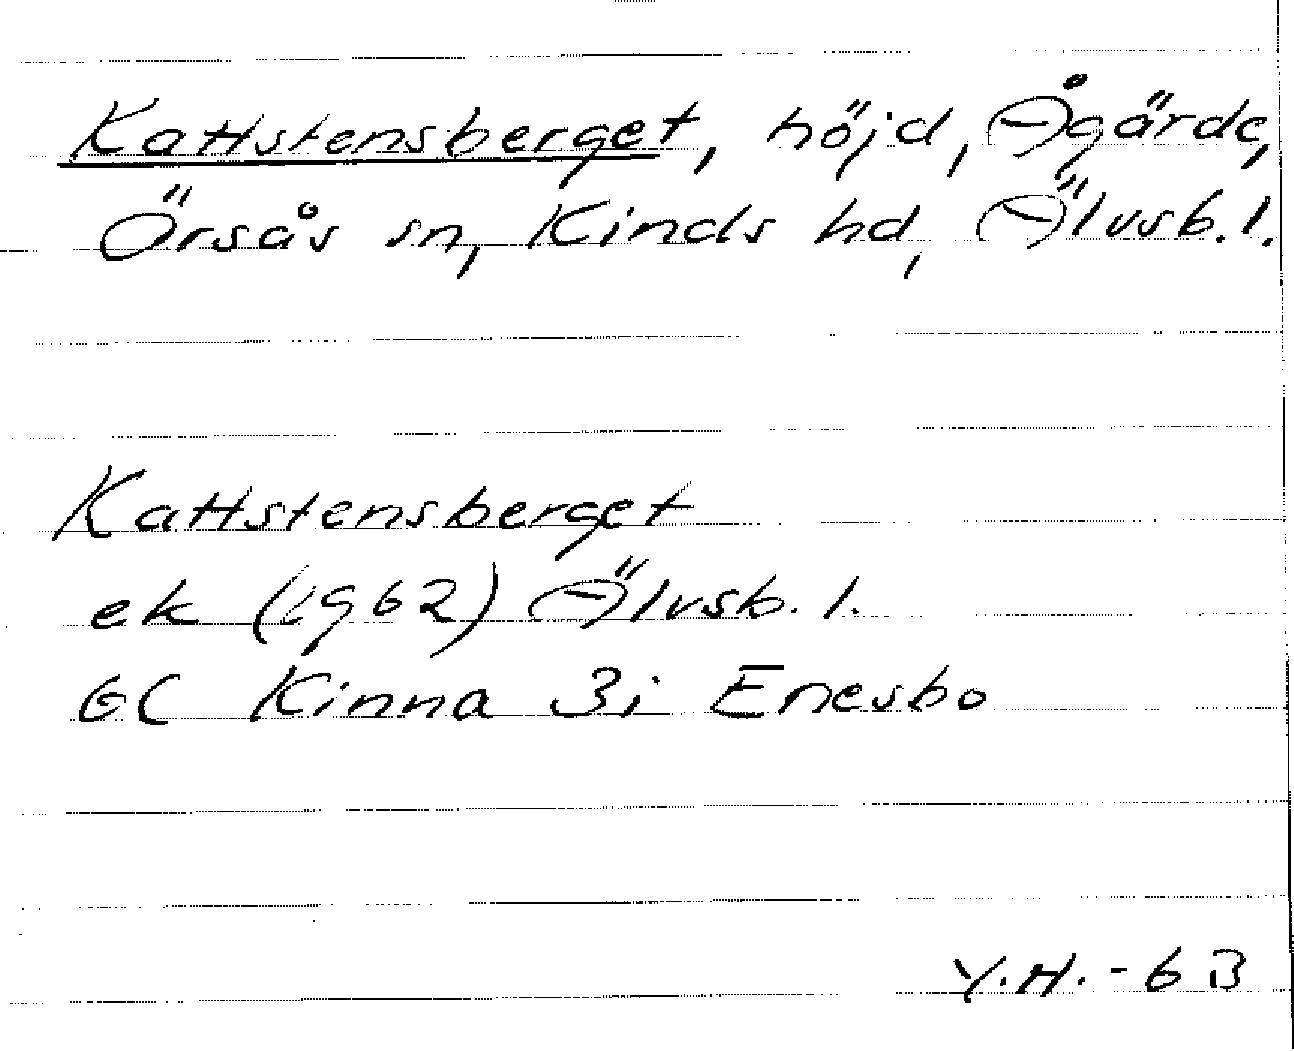 Kattstensberget, höjd, Ågärde,
Örsås sn, Kinds hd, Älvsb. l.
Kattstensberget
ek (1962) Älvsb. l.
GC Kinna 3i Enesbo
Y.H. - 63